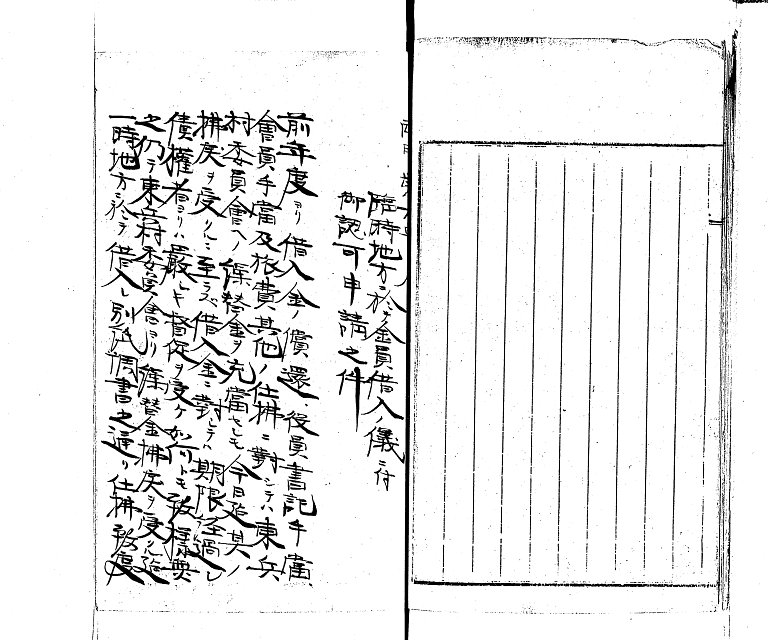 臨時地方ニ於テ金員借入儀ニ付
御認可申請之件
前年度ヨリ借入金ノ償還、役員書記手當、
會員手當及旅費其他ノ仕拂ニ對シテハ東兵
村委員會ヘノ繰替金ヲ充當セシモ今日迄其ノ
拂戻ヲ受クルニ至ラズ借入金ニ對シテハ期限経過シ
債權者ヨリハ嚴シキ督促ヲ受ケ如何トモ致樣無
之仍テ東兵村委員會ヨリ繰替金拂戻ヲ受クル迄
一時地方ニ於テ借入レ別紙調書之通リ仕拂致度